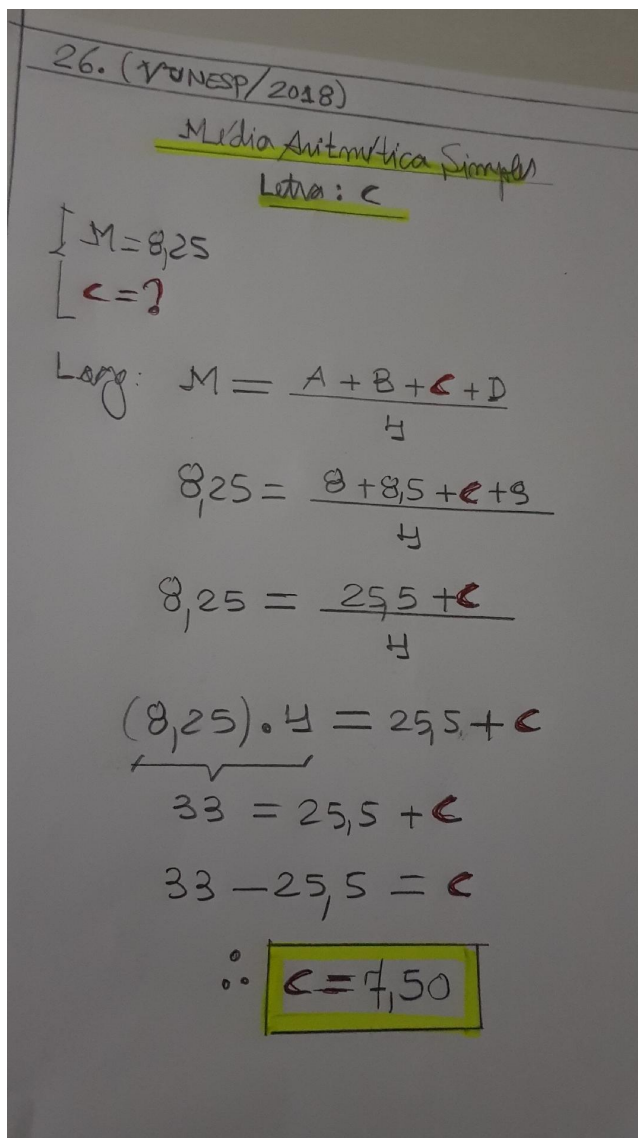 26. (VUNESP/2018)
Média Aritmética Simples
Letra: C
M = 8,25
C = ?
Logo: M = A + B + C + D / 4
8,25 = 8 + 8,5 + C + 9 / 4
8,25 = 25,5 + C / 4
(8,25) . 4 = 25,5 + C
33 = 25,5 + C
33 - 25,5 = C
∴ C = 7,50